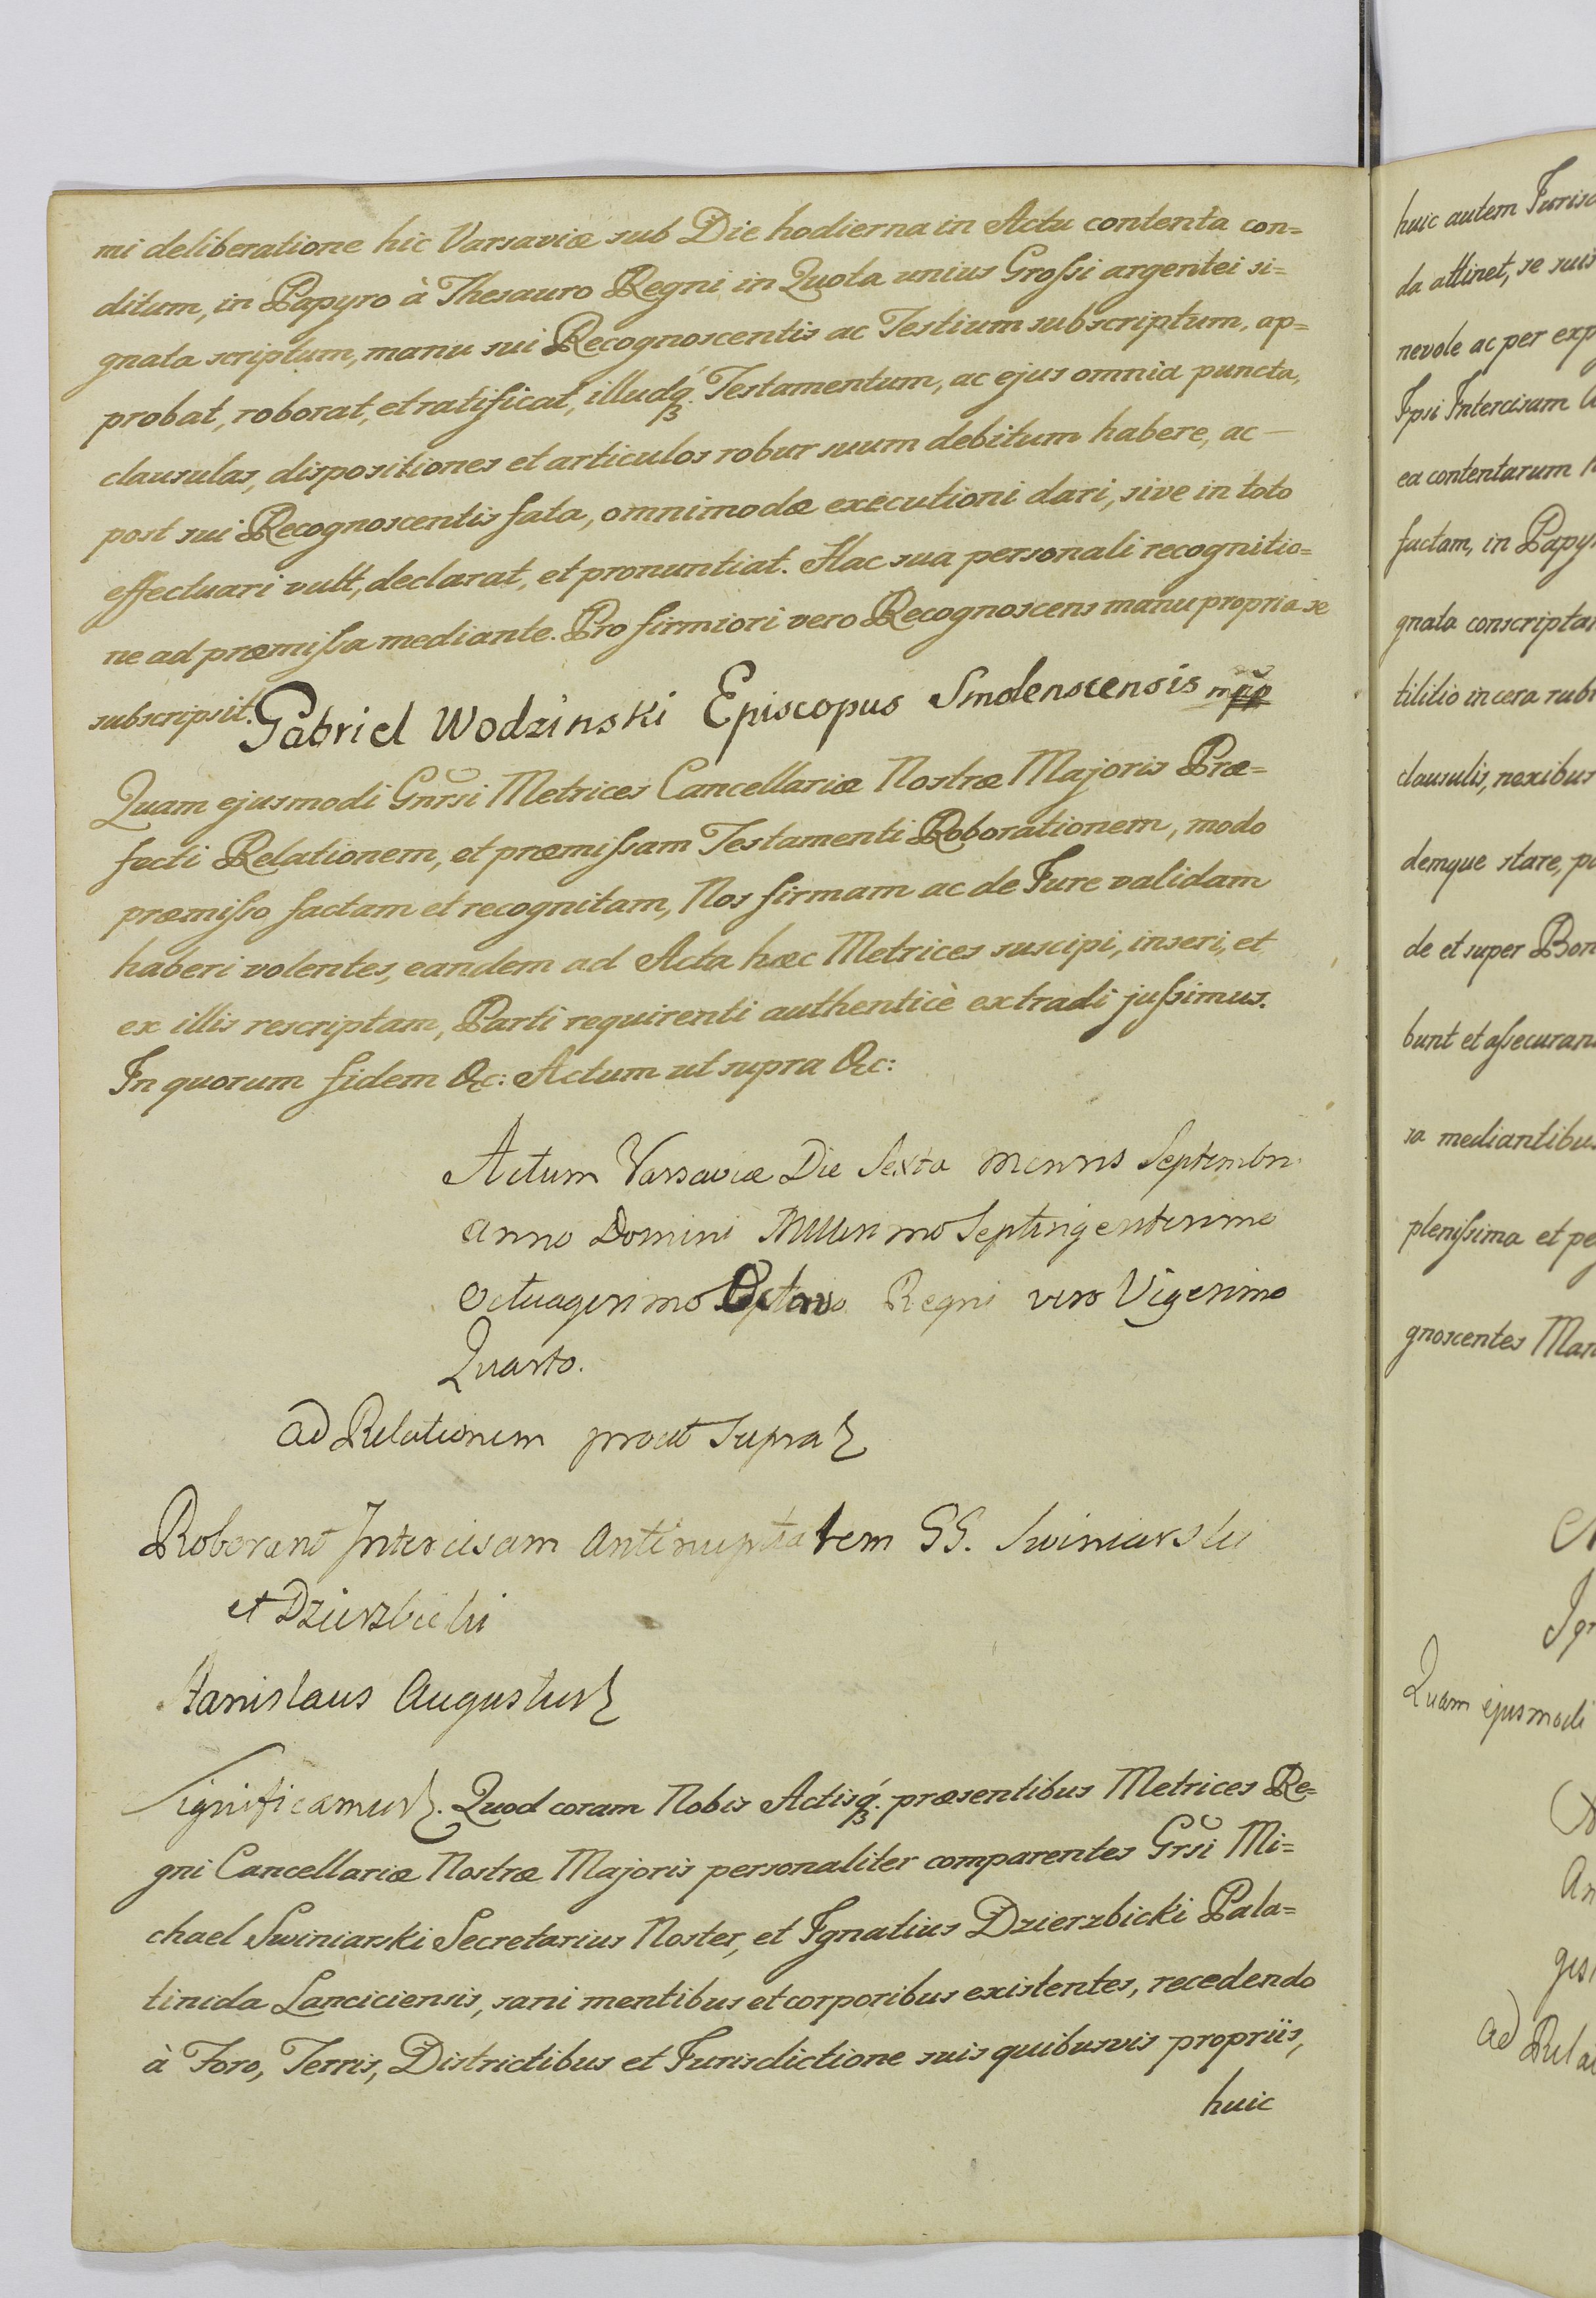 mi deliberatione hic Varsaviæ sub Die hodierna in Actu contenta con=
ditum, in Papyro à Thesauro Regni in Quota unius Grossi argentei si=
gnata scriptum, manu sui Recognoscentis ac Testium subscriptum, ap=
probat, roborat, et ratificat, illudq́ꝫ Testamentum, ac ejus omnia puncta,
clausulas, dispositiones et articulos robur suum debitum habere, ac —
post sui Recognoscentis fata, omnimodæ executioni dari, sive in toto
effectuari vult, declarat, et pronuntiat. Hac sua personali recognitio=
ne ad præmissa mediante. Pro firmiori vero Recognoscens manu propria se
subscripsit. Gabriel Wodzinski Episcopus Smolenscensis mpp
Quam ejusmodi Gnrsi Metrices Cancellariæ Nostræ Majoris Præ=
fecti Relationem, et præmissam Testamenti Roborationem, modo
præmisso factam et recognitam, Nos firmam ac de Jure validam
haberi volentes, eandem ad Acta hæc Metrices suscipi, inseri, et
ex illis rescriptam, Parti requirenti authenticè extradi jussimus.
In quorum fidem &c: Actum ut supra &c:
Actum Varsaviæ Die Sexta Mensis Septembris
Anno Domini Millesimo Septingentesimo
Octuagesimo Octavo Regni vero Vigesimo
Quarto.
ad Relationem prout supra
Roborant Intercisam Antinuptialem GG. Swiniarski
et Dzierzbicki
Stanislaus Augustus
Significamus. Quod coram Nobis Actisq́ꝫ præsentibus Metrices Re=
gni Cancellariæ Nostræ Majoris personaliter comparentes Grsi Mi=
chael Swiniarski Secretarius Noster, et Ignatius Dzierzbicki Pala=
tinida Lanciciensis, sani mentibus et corporibus existentes, recedendo
à Foro, Terris, Districtibus et Jurisdictione suis quibusvis propriis,
huic
huic autem
da attinet, se suis
nevole ac per
Ipsi Intercisam
ea contentarum
factam, in
gnata
in cera
clausulis, nexibus
demque stare,
de et super
bunt et
sa mediantibus
plenissima et
gnoscentes
Quam ejusmodi
ad